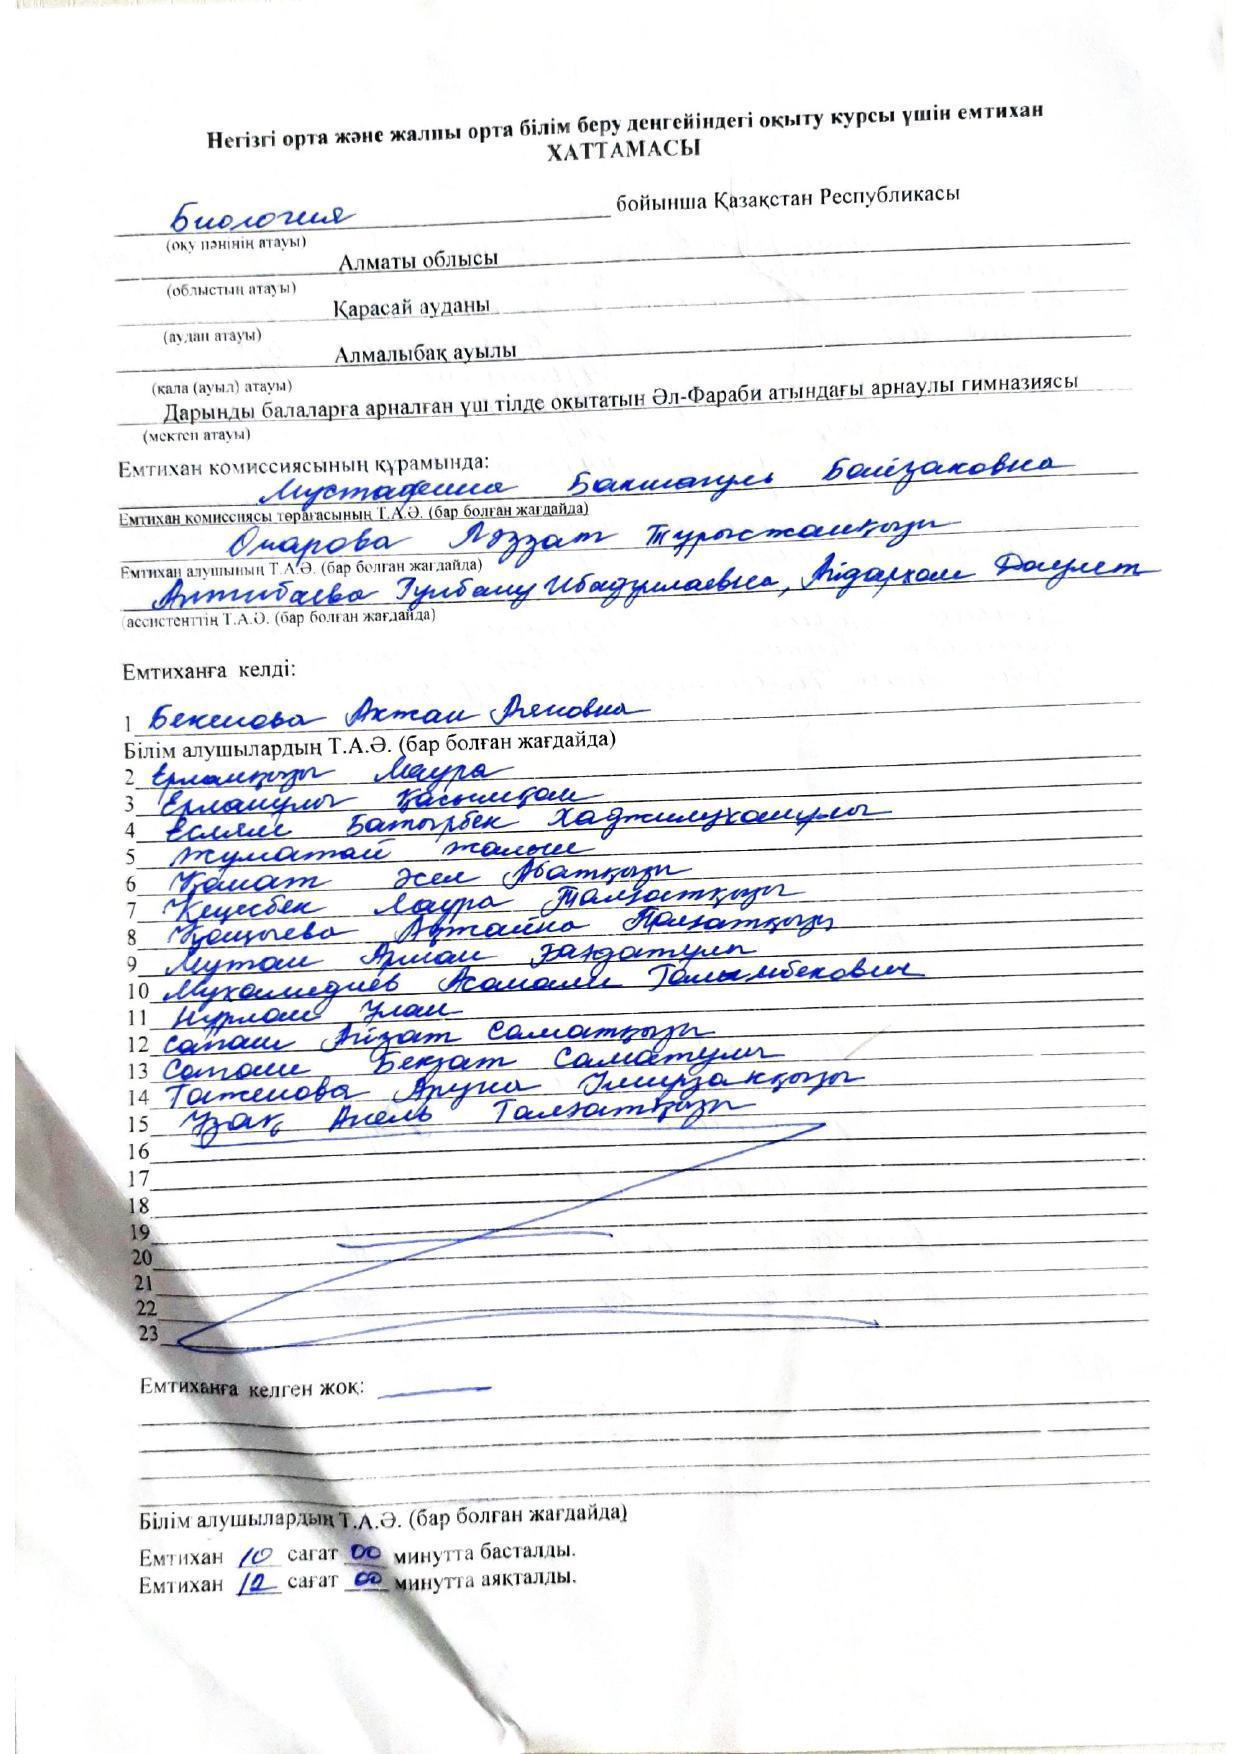 Негізгі орта және жалпы орта білім беру деңгейіндегі оқыту курсы үшін емтихан
ХАТТАМАСЫ
Биология бойынша Қазақстан Республикасы
(оқу пәнінің атауы)
Алматы облысы
(облыстың атауы)
Қарасай ауданы
(аудан атауы)
Алмалыбақ ауылы
(қала (ауыл) атауы)
Дарынды балаларға арналған үш тілде оқытатын Әл-Фараби атындағы арнаулы гимназиясы
(мектеп атауы)
Емтихан комиссиясының құрамында:
Мустафина Бакшагуль Байзаковна
Емтихан комиссиясы төрағасының Т.А.Ә. (бар болған жағдайда)
Омарова Ләззат Тұрысжанқызы
Емтихан алушының Т.А.Ә. (бар болған жағдайда)
Гулбану Ибадуллаевна, Айдархан Даулет
(ассистенттің Т.А.Ә. (бар болған жағдайда)
Емтиханға келді:
1 Бекенова Ақжан
Білім алушылардың Т.А.Ә. (бар болған жағдайда)
2 Ерланқызы Маура
3 Ерланұлы Қасымхан
4 Еслям Батырбек Хаджимуханұлы
5 Жуматай Жалын
6 Қанат Әсел Абатқызы
7 Кеңесбек Лаура Талғатқызы
8 Қоңқыева Ақтайна Талғатқызы
9 Мутан Арман
10 Мухамедиев Асанали Талымбекович
11 Нұрлан Ұлан
12 Сапаш Айзат Саматқызы
13 Сапаш Бекзат Саматұлы
14 Таженова Аруна Әмірзаққызы
15 Ұзақ Анель Талғатқызы
16
17
18
19
20
21
22
23
Емтиханға келген жоқ:
Білім алушылардың Т.А.Ә. (бар болған жағдайда)
Емтихан 10 сағат 00 минутта басталды.
Емтихан 12 сағат 00 минутта аяқталды.